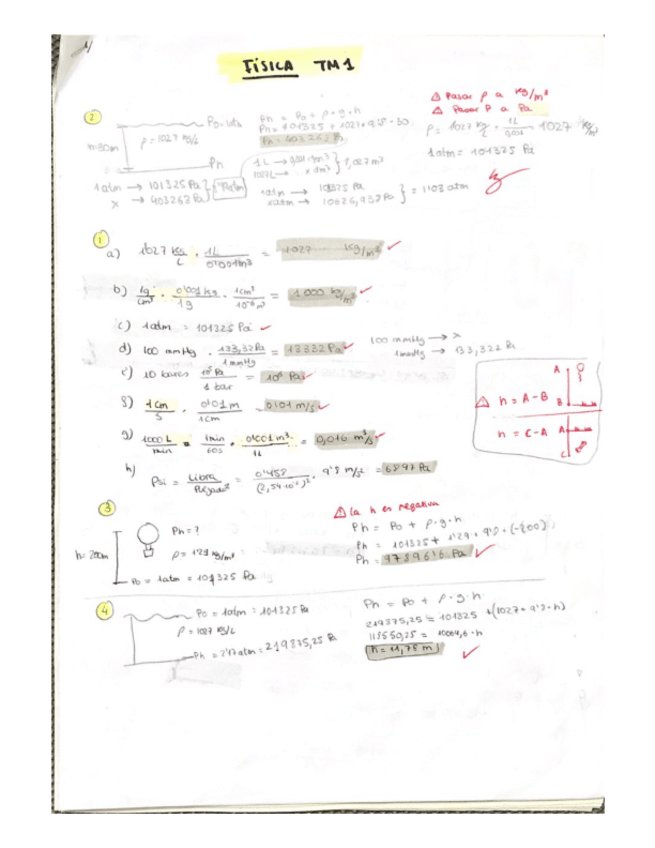 FÍSICA TM1
⚠ Pasar ρ a kg/m³
⚠ Pasar P a Pa
2
ρ = 1027 kg/L
h=30m
Ph
Ph = Po + ρ·g·h
1atm = 101325 Pa
1atm → 101325 Pa
x → 403263 Pa
= 1'03 atm
1
a) 1027 kg/L · 1L/0'001m³ = 1027 kg/m³
b) 1g/cm³ · 0'001kg/1g · 1cm³/10⁻⁶m³ = 1000 kg/m³
c) 1atm = 101325 Pa
d) 100 mmHg · 133,32Pa/1mmHg = 13332Pa
100 mmHg → x
1mmHg → 133,322 Pa
e) 10 bares · 10⁵Pa/1 bar = 10⁶ Pa
f) 1cm/s · 0'01m/1cm = 0'01 m/s
g) 1000 L/min · 1min/60s · 0'001m³/1L = 0,016 m³/s
h) Psi = Libra/Pulgada² = 0'453/(2,54·10⁻²)² · 9'8 m/s² = 6897 Pa
⚠ h = A-B
A
B
h = C-A
A
C
3
⚠ La h es negativa
h= 200m
Ph = ?
ρ = 1'29 kg/m³
Po = 1atm = 101325 Pa
Ph = Po + ρ·g·h
Ph = 101325 + 1'29 · 9'8 · (-200)
Ph = 97896'6 Pa
4
Po = 1atm = 101325 Pa
ρ = 1027 kg/L
Ph = 2'17 atm = 219875,25 Pa
Ph = Po + ρ·g·h
219875,25 = 101325 + (1027 · 9'8 · h)
118550,25 = 10064,6 · h
h = 11,78 m